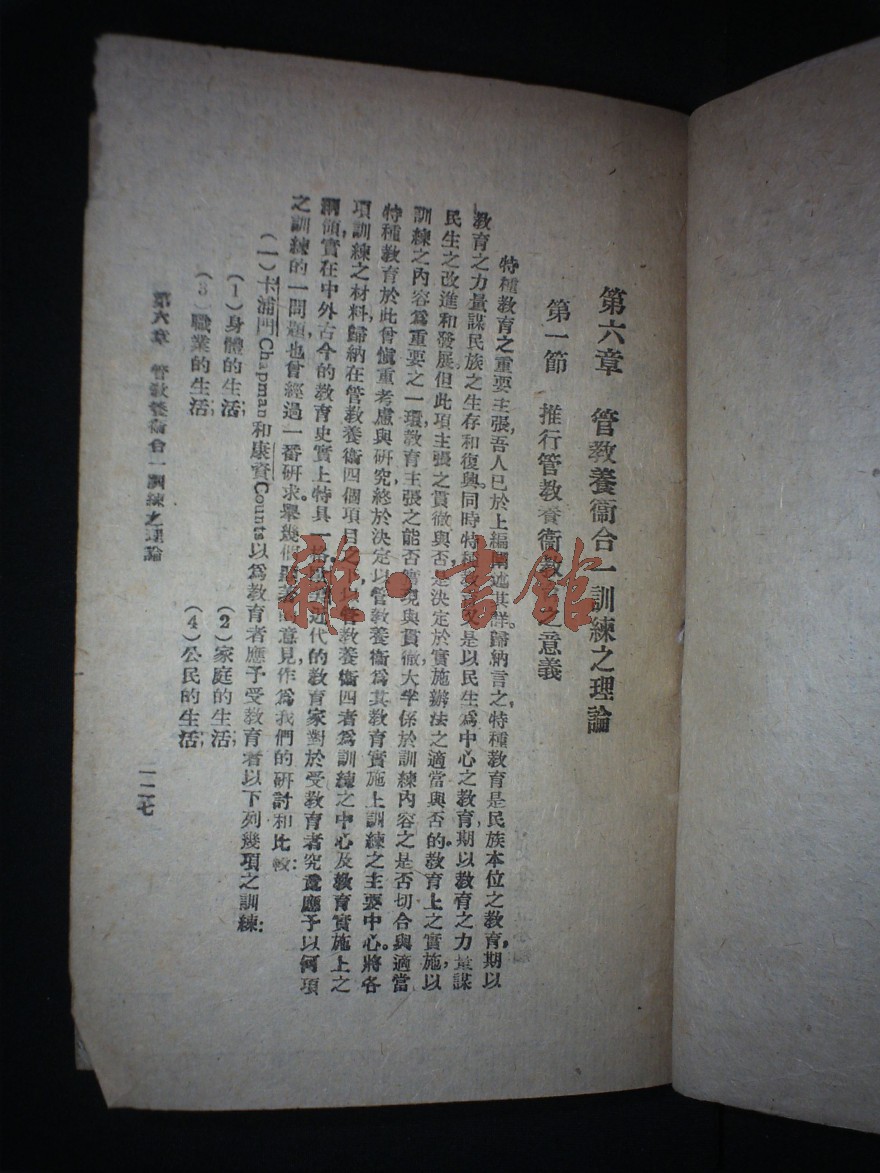 第六章 管教養衞合一訓練之理論
第一節 推行管教養衞教之意義
特種教育之重要主張,吾人已於上編闡述其詳。歸納言之,特種教育是民族本位之教育,期以
教育之力量謀民族之生存和復興,同時特種教育又是以民生爲中心之教育,期以教育之力量謀
民生之改進和發展。但此項主張之貫徹與否,是決定於實施辦法之適當與否的。教育上之實施,以
訓練之內容爲重要之一環,教育主張之能否實現與貫徹,大半係於訓練內容之是否切合與適當
特種教育於此曾愼重考慮與研究,終於決定以管教養衞爲其教育實施上訓練之主要中心。將各
項訓練之材料歸納在管教養衞四個項目之 管教養衞四者爲訓練之中心及教育實施上之
綱領,實在中外古今的教育史實上特具一格 近代的教育家對於受教育者究竟應予以何項
之訓練的一問題,也曾經過一番研求。舉幾個 意見,作爲我們的研討和比較:
(一)卡浦門Chapman和康資Counts以爲教育者應予受教育者以下列幾項之訓練:
(1)身體的生活; (2)家庭的生活;
(3)職業的生活; (4)公民的生活;
第六章 管教養衞合一訓練之理論
一二七
雜·書館